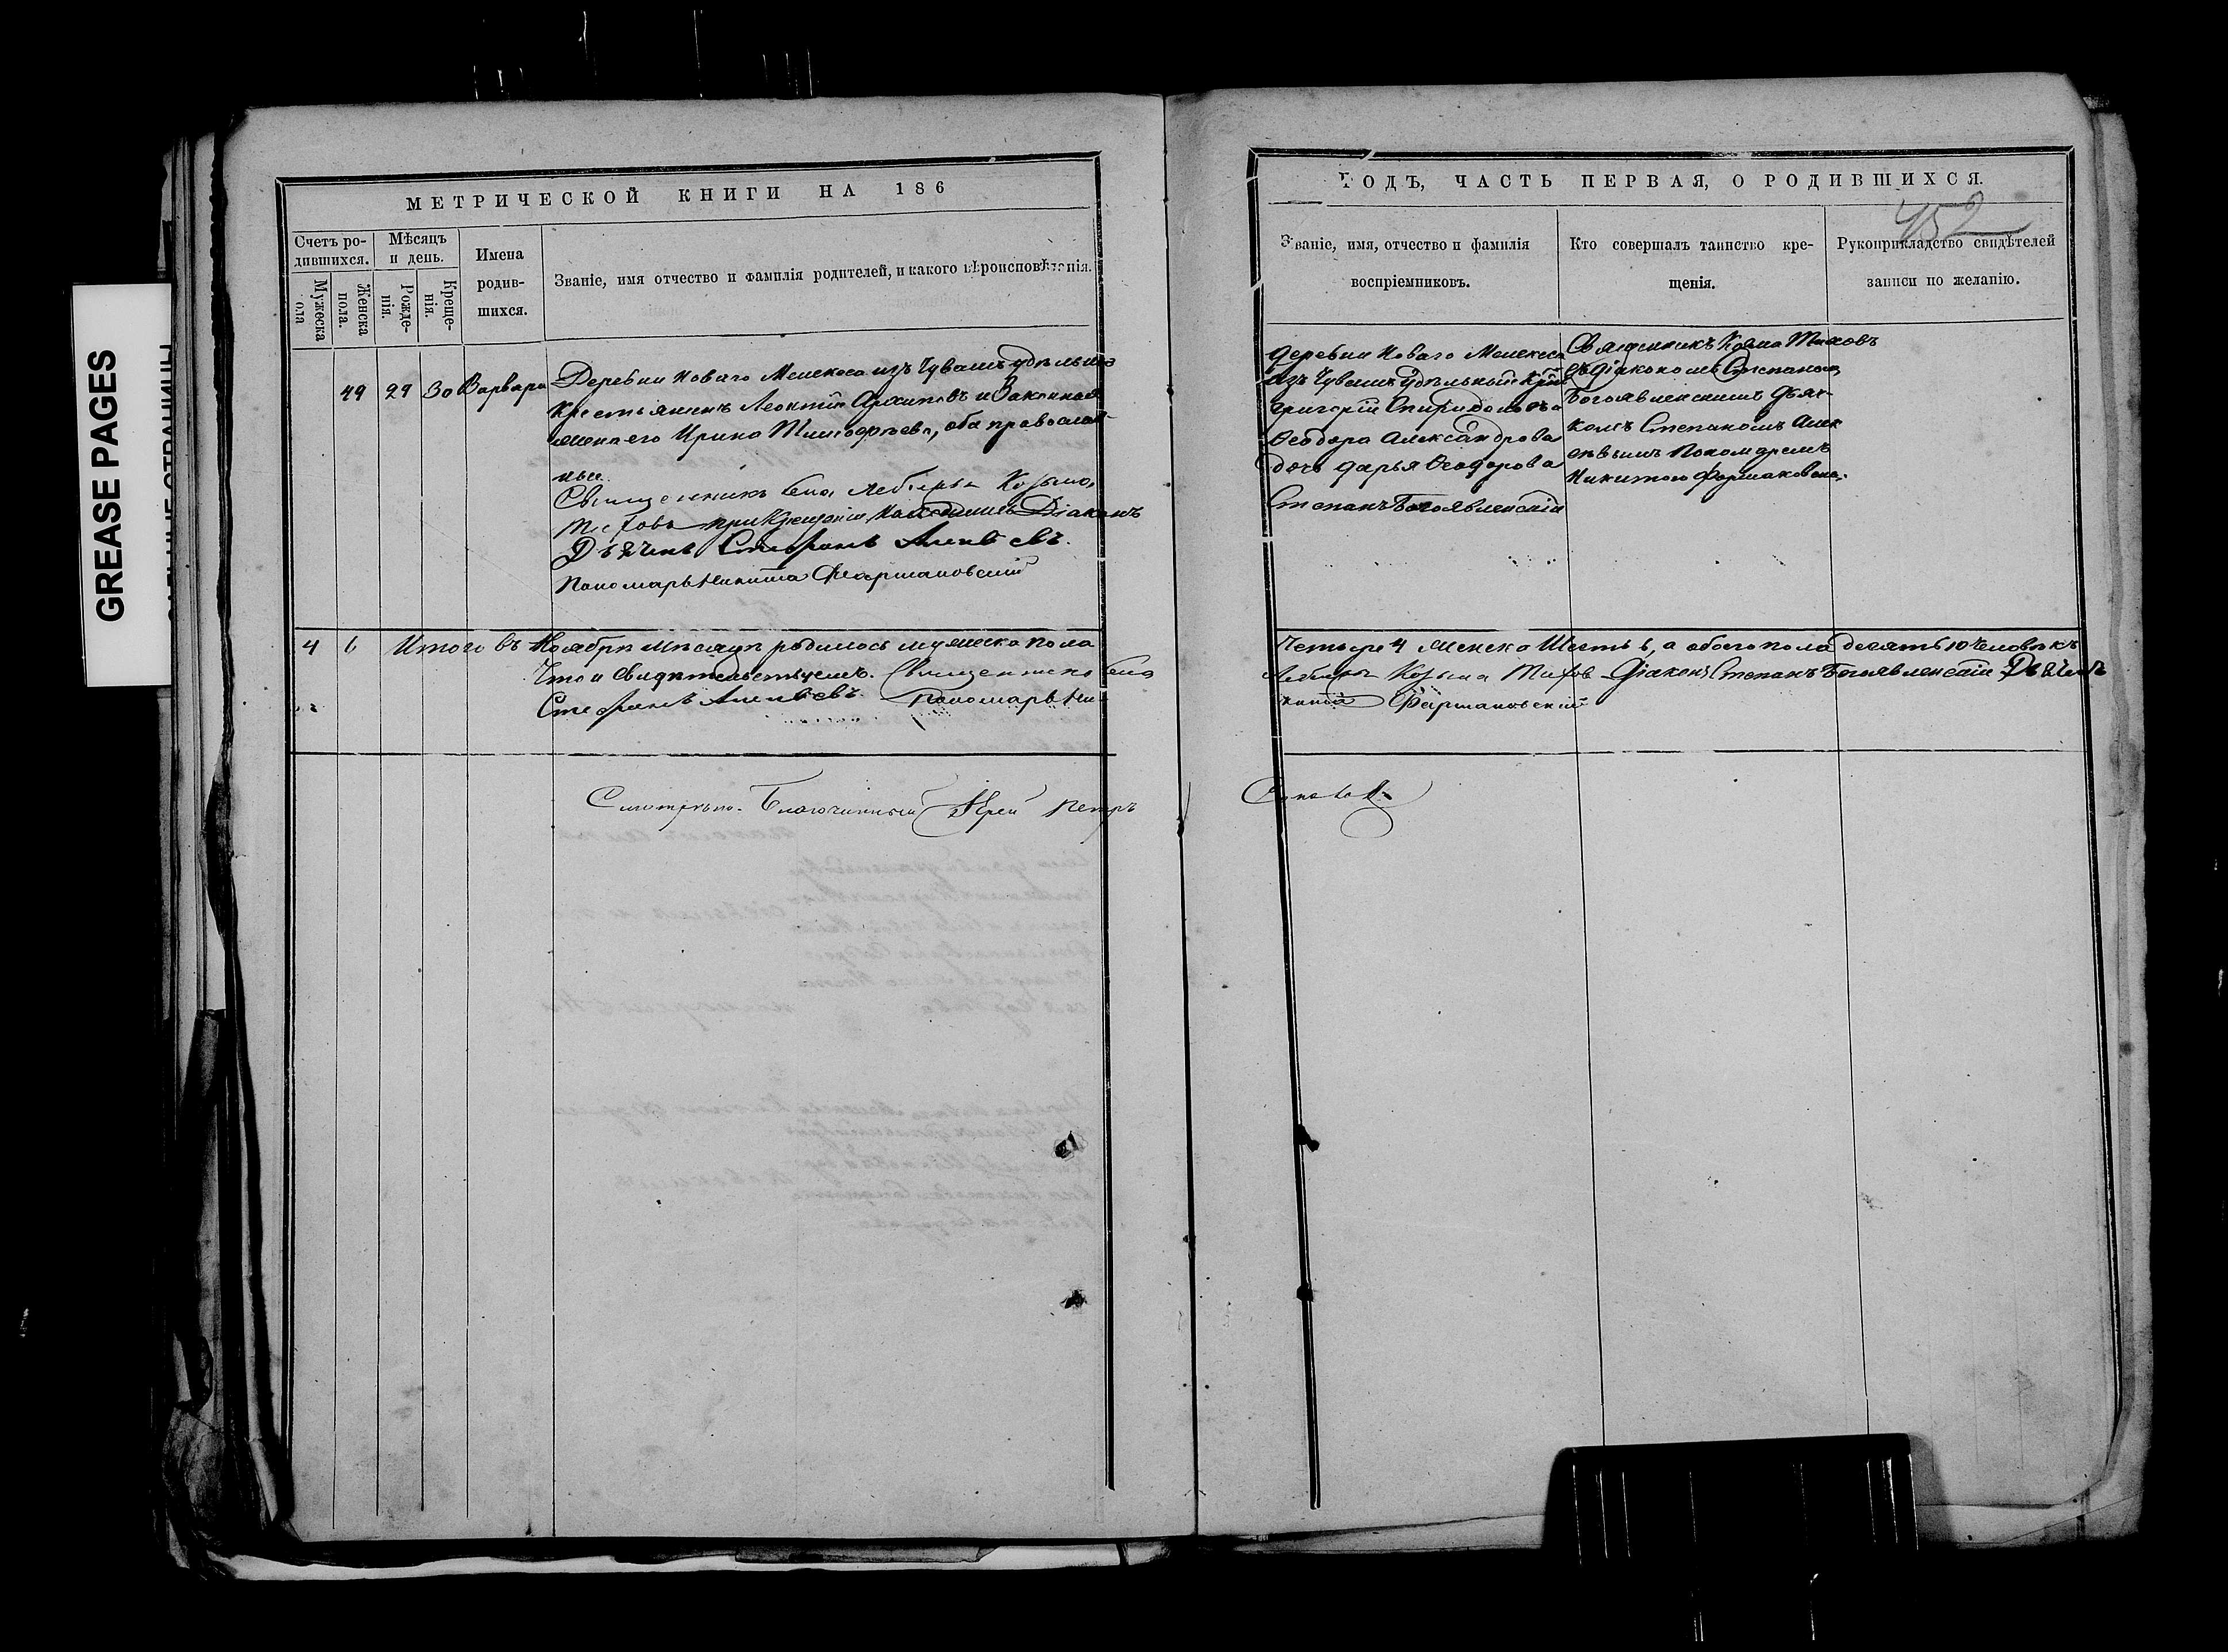 GREASE PAGES
МЕТРИЧЕСКОЙ КНИГИ НА 186
Счетъ ро-
дившихся.
Мѣсяцъ
и день.
Имена
родив-
шихся.
Званіе, имя отчество и фамилія родителей, и какого вѣроисповѣданія.
Мужеска
пола
Женска
пола.
Рожде-
нія.
Креще-
нія.
49 29 30 Варвара
Деревни Новаго Мелекеса изъ Чувашъ удѣльный
Крестьянинъ Леонтій Архиповъ и Законная
жена его Ирина Тимоѳеева, оба православ-
ные.
Священникъ Козьма
Тиховъ при крещеніи находились Діаконъ
Дьячекъ Стефанъ
Пономарь Никита Фармаковскій
4 6 Итого въ Ноябрѣ мѣсяцѣ родилось мужеска пола
Что и свидѣтельствуемъ. Священникъ села
Стефанъ Пономарь Ни-
Смотрѣлъ. Благочинный Іерей Петръ
ГОДЪ, ЧАСТЬ ПЕРВАЯ, О РОДИВШИХСЯ.
452
Званіе, имя, отчество и фамилія
воспріемниковъ.
Кто совершалъ таинство кре-
щенія.
Рукоприкладство свидѣтелей
записи по желанію.
Деревни Новаго Мелекеса
изъ Чувашъ удѣльный
Григорій Спиридоновъ
Ѳеодора Александрова
дочь Дарья Ѳеодорова
Степанъ Богоявленскій
Священникъ Козма Тиховъ
съ Діакономъ Степаномъ
Богоявленскимъ Дьяч-
комъ Степаномъ Алек
Пономаремъ
Никитою Фармаковскимъ
Четыре 4 женска Шесть 6, а обоего пола десять 10 человѣкъ
Козьма Тиховъ Діаконъ Степанъ Богоявленскій Дьячекъ
кита Фармаковскій